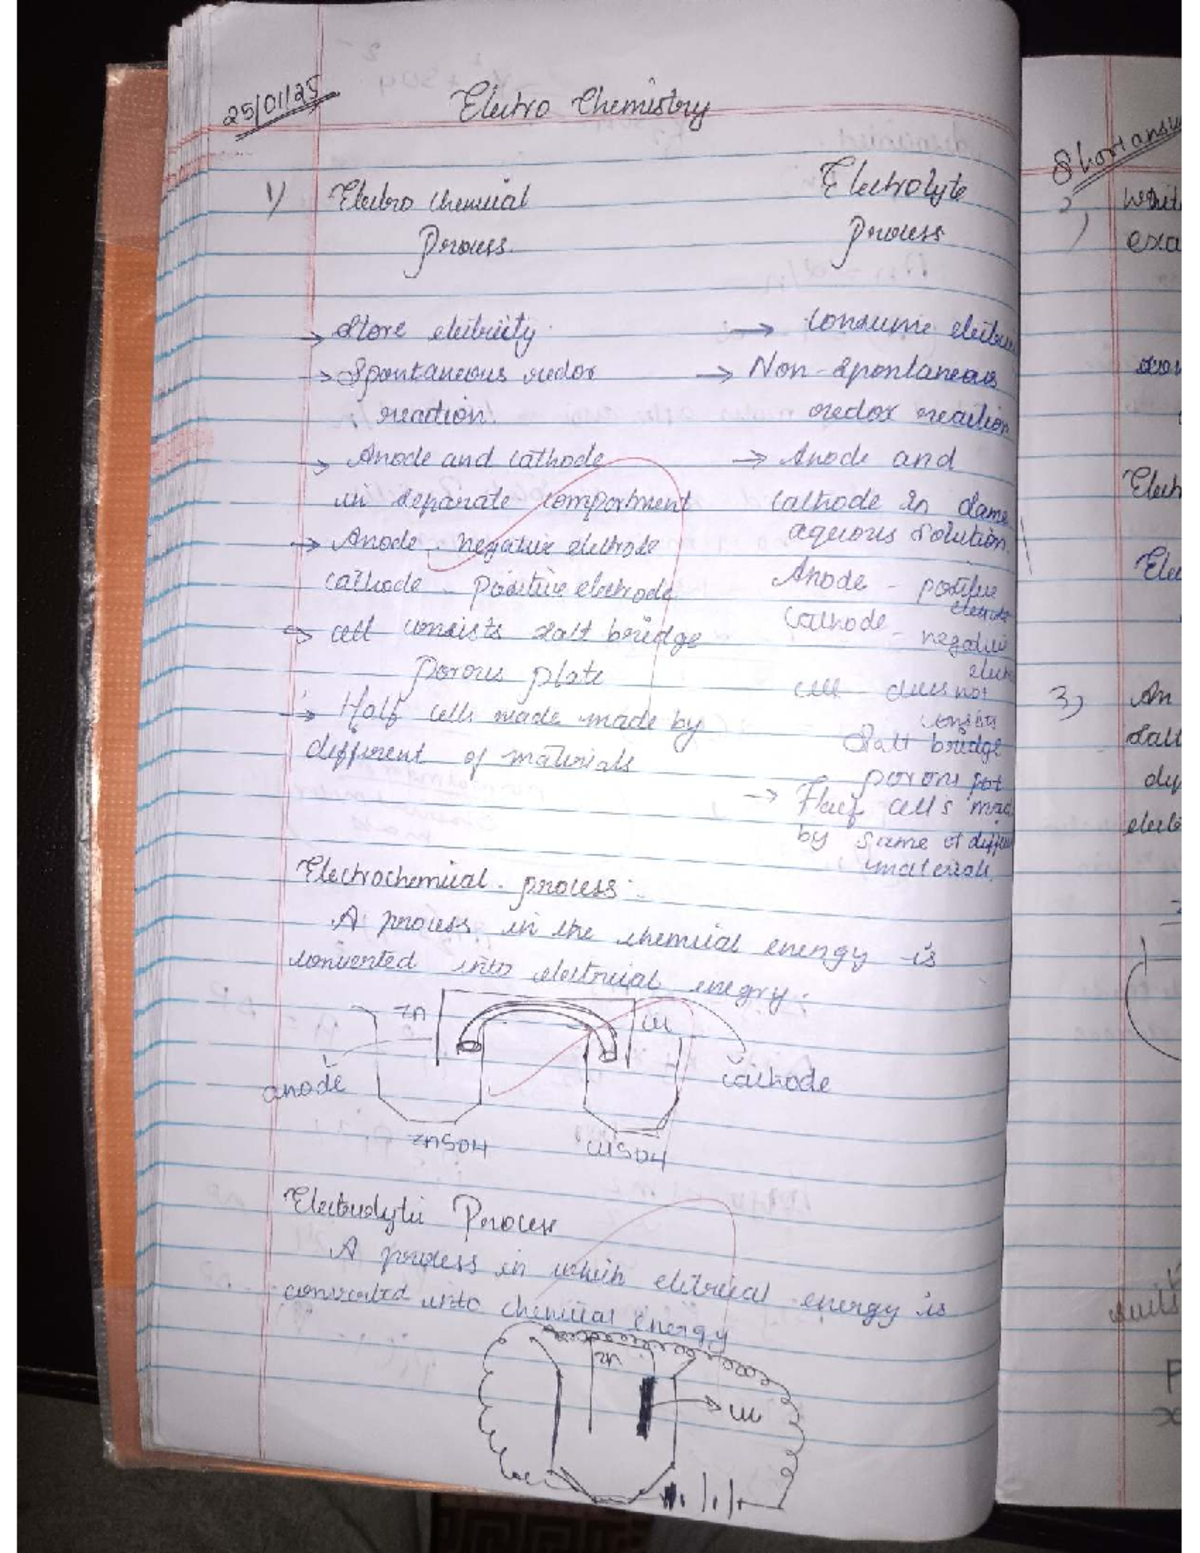 25/01/25
Electro Chemistry
1) Electro chemical
Process.
→ Store eletricity.
→ Spontaneous redox
reaction.
→ Anode and cathode
in separate compartment
→ Anode - negative eletrode
cathode - positive electrode
→ cell consists salt bridge
porous plate
→ Half cells made made by
different of materials
Electrolyte
Process
→ consume eletric
→ Non-spontaneous
redox reaction
→ Anode and
cathode In same
aqueous solution.
Anode - positive
Cathode - negative
cell does not
Salt bridge
porous pot
→ Half cells mad
by same or diffe
materials.
Electrochemical process:
A process in the chemical energy is
converted into electrical enegry.
Zn
cu
anode
cathode
ZnSO4
cuSO4
Electrolytic Process
A process in which eletrical energy is
converted into chemical energy
Zn
cu
Short answ
2) Writ
exa
Elect
Ele
3) An
salt
dy
electo